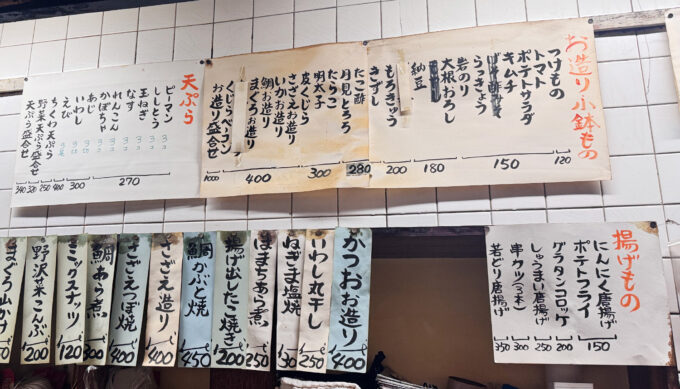 お造り 小鉢もの
つけもの
トマト
ポテトサラダ
キムチ
らっきょう
岩のり
大根おろし
納豆
もろきゅう
きずし
たこ酢
月見とろろ
たらこ
明太子
皮くじら
さざえお造り
いかお造り
鯛お造り
まぐろお造り
くじらベーコン
お造り盛合せ
120
150
180
200
280
300
400
1000
天ぷら
ピーマン
ししとう
玉ねぎ
なす
れんこん
かぼちゃ
あじ
いわし
えび
ちくわ天ぷら
野菜天ぷら盛合せ
天ぷら盛合せ
270
300
400
250
320
340
揚げもの
にんにく唐揚げ
ポテトフライ
グラタンコロッケ
しゅうまい唐揚げ
串カツ(3本)
若どり唐揚げ
150
200
250
300
350
かつおお造り
400
いわし丸干し
250
ねぎま塩焼
はまちあら煮
250
揚げ出したこ焼き
200
鯛かぶと焼
450
さざえ造り
400
さざえつぼ焼
400
鯛あら煮
300
ミックスナッツ
120
野沢菜こんぶ
200
まぐろ山かけ